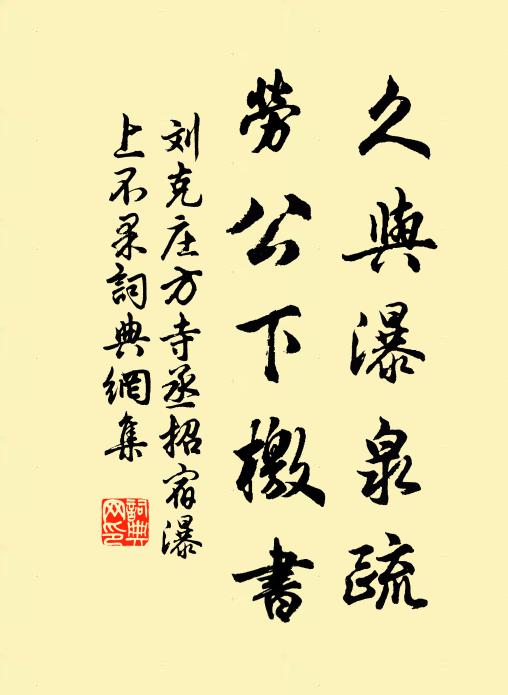 久與瀑泉疏
勞公下檄書
刘克庄方寺丞招宿瀑
上不果詞典網集
詞典网印